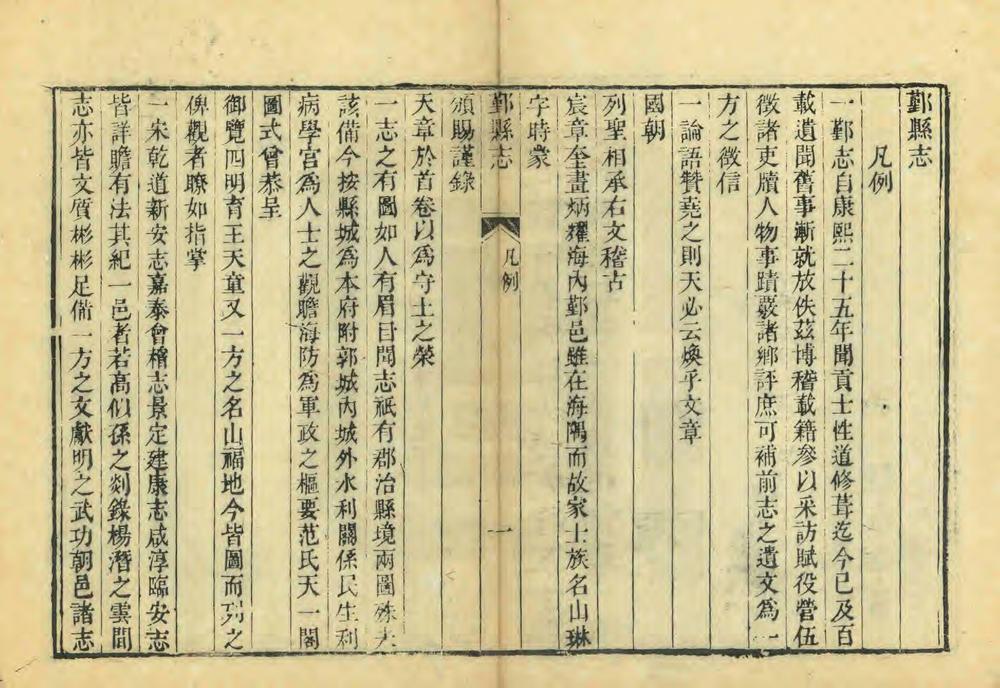 鄞縣志
凡例
一鄞志自康熙二十五年聞貢士性道修葺迄今已及百
載遺聞舊事漸就放佚茲博稽載籍參以采訪賦役營伍
徵諸吏牘人物事蹟覈諸鄉評庶可補前志之遺文爲一
方之徵信
一論語贊堯之則天必云煥乎文章
國朝
列聖相承右文稽古
宸章奎畫炳耀海內鄞邑雖在海隅而故家士族名山琳
宇時蒙
鄞縣志 凡例 一
頒賜謹錄
天章於首卷以爲守土之榮
一志之有圖如人有眉目聞志祇有郡治縣境兩圖殊未
該備今按縣城爲本府附郭城內城外水利關係民生利
病學宮爲人士之觀瞻海防爲軍政之樞要范氏天一閣
圖式曾恭呈
御覽四明育王天童又一方之名山福地今皆圖而列之
俾觀者瞭如指掌
一宋乾道新安志嘉泰會稽志景定建康志咸淳臨安志
皆詳贍有法其紀一邑者若高似孫之剡錄楊潛之雲間
志亦皆文質彬彬足備一方之文獻明之武功朝邑諸志